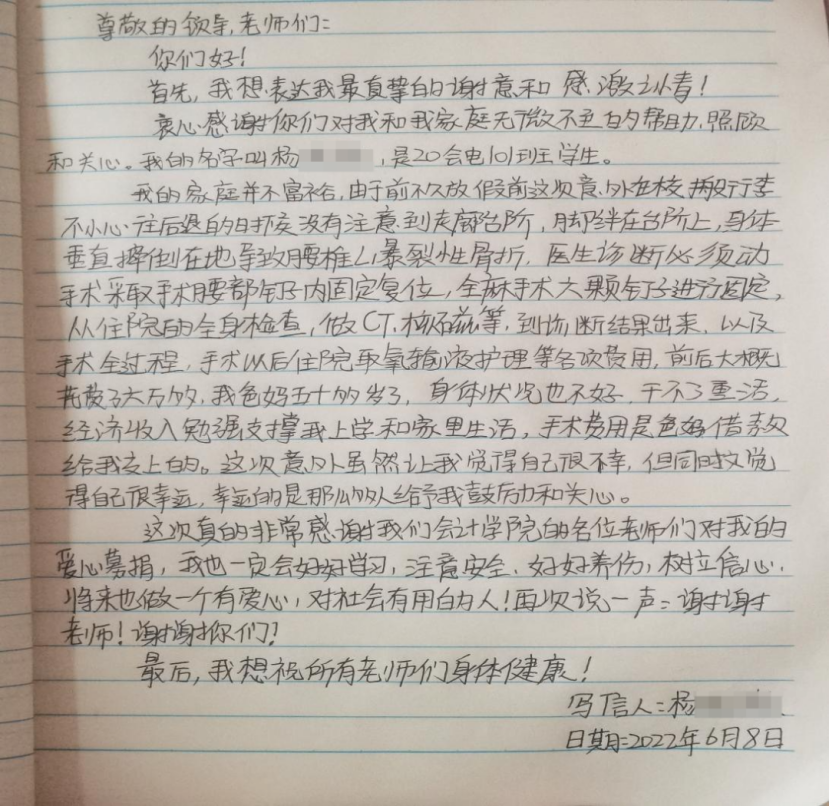 尊敬的领导,老师们:
你们好!
首先,我想表达我最真挚的谢意和感激之情!
衷心感谢你们对我和我家庭无微不至的帮助、照顾
和关心。我的名字叫杨,是20会电101班学生。
我的家庭并不富裕,由于前不久放假前这次意外在校搬行李
不小心往后退的时候没有注意到走廊台阶,脚绊在台阶上,身体
垂直摔倒在地导致腰椎L1暴裂性骨折,医生诊断必须动
手术采取手术腰部钉子内固定复位,全麻手术六颗钉子进行固定,
从住院的全身检查,做CT、核磁等,到诊断结果出来,以及
手术全过程,手术以后住院取氧输液护理等各项费用,前后大概
花费了六万多,我爸妈五十多岁了,身体状况也不好,干不了重活,
经济收入勉强支撑我上学和家里生活,手术费用是爸妈借款
给我交上的。这次意外虽然让我觉得自己很不幸,但同时又觉
得自己很幸运,幸运的是那么多人给予我鼓励和关心。
这次真的非常感谢我们会计学院的各位老师们对我的
爱心募捐,我也一定会好好学习,注意安全、好好养伤,树立信心,
将来也做一个有爱心,对社会有用的人!再次说一声:谢谢
老师!谢谢你们!
最后,我想祝所有老师们身体健康!
写信人:杨
日期:2022年6月8日